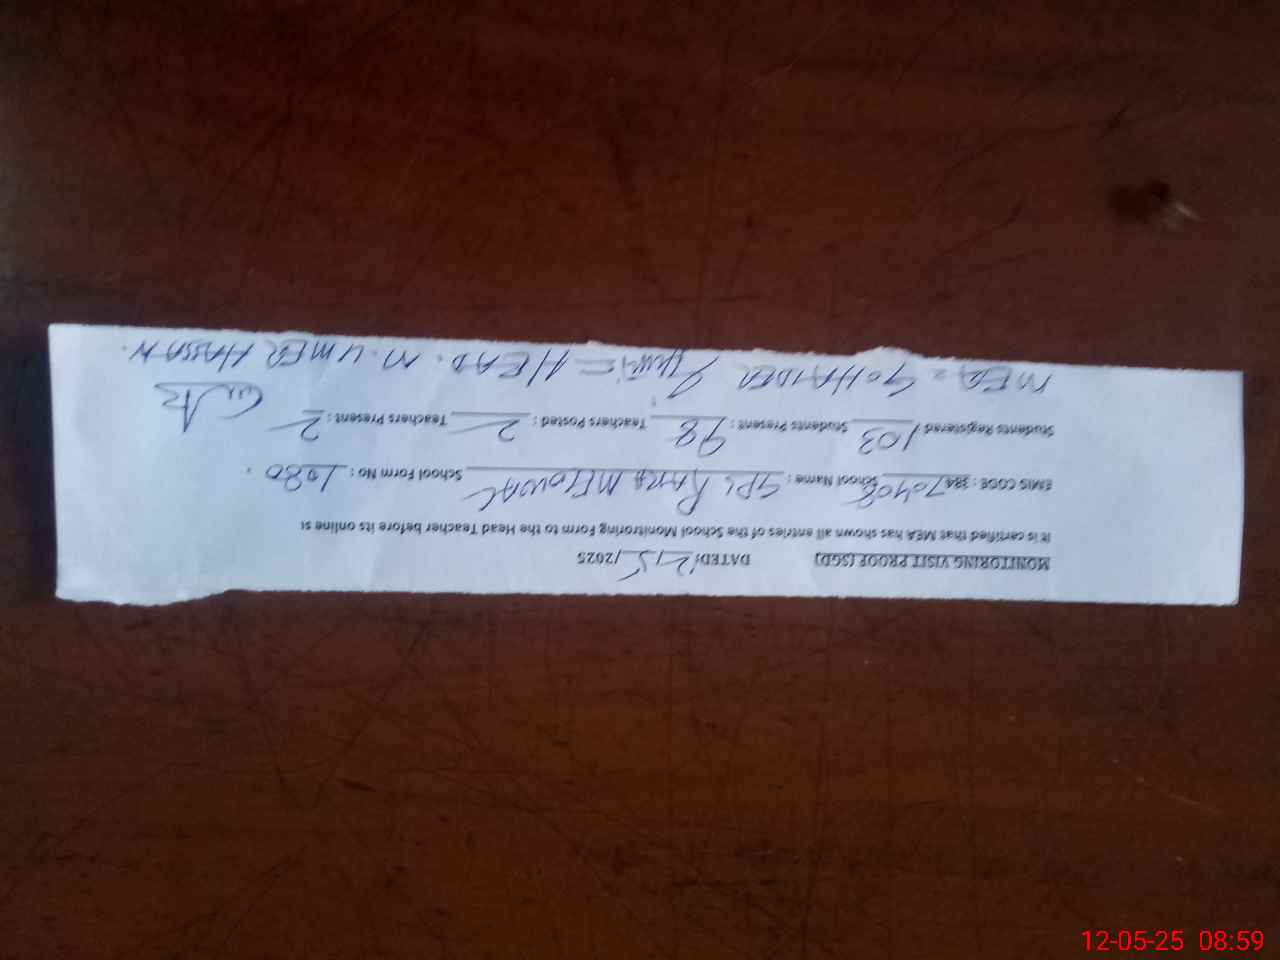 MONITORING VISIT PROOF (SGD) DATED: 12/5/2025
It is certified that MEA has shown all entries of the School Monitroring Form to the Head Teacher before its online
EMIS CODE : 38470408 School Name : GPS MELOWAL School Form No : 1080
Students Registered 103 Students Present : 98 Teachers Posted : 2 Teachers Present : 2
MEA = HAIDER HEAD. M. UMER HASSAN.
12-05-25 08:59